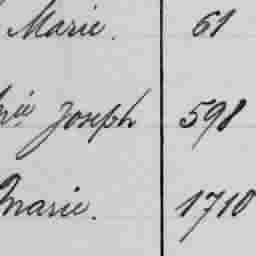 Marie. 61
rie Joseph 598
Marie. 1710